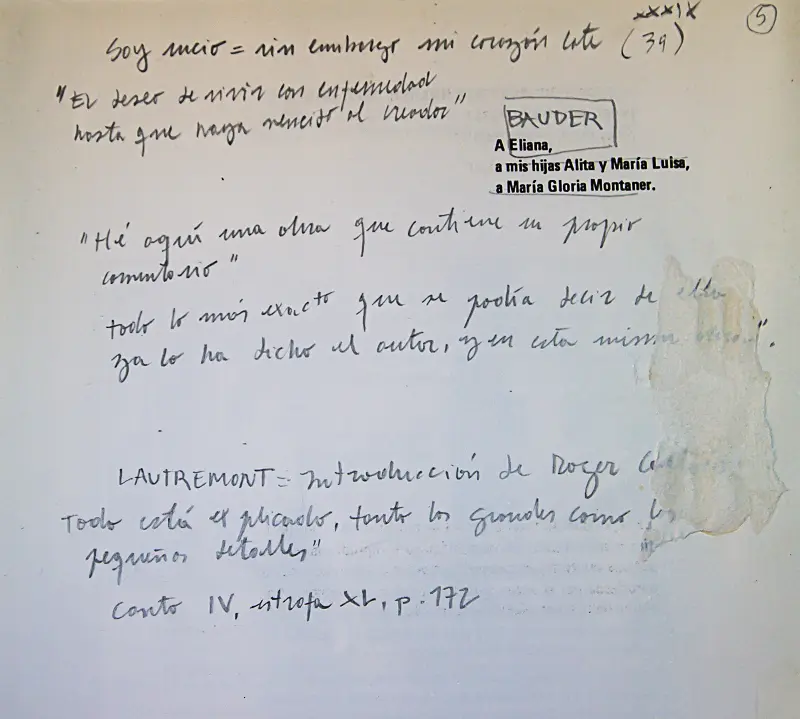 XXXIX
5
Soy sucio = sin embargo mi corazón late (39)
"El deseo de vivir con enfermedad
hasta que haya vencido al creador"
BAUDER
A Eliana,
a mis hijas Alita y María Luisa,
a María Gloria Montaner.
"Hé aquí una obra que contiene su propio
comentario"
todo lo más exacto que se podía decir de ella
ya lo ha dicho el autor, y en esta misma obra".
LAUTREMONT = introducción de Roger
Todo está explicado, tanto los grandes como los
pequeños detalles"
Canto IV, estrofa XL, p. 172